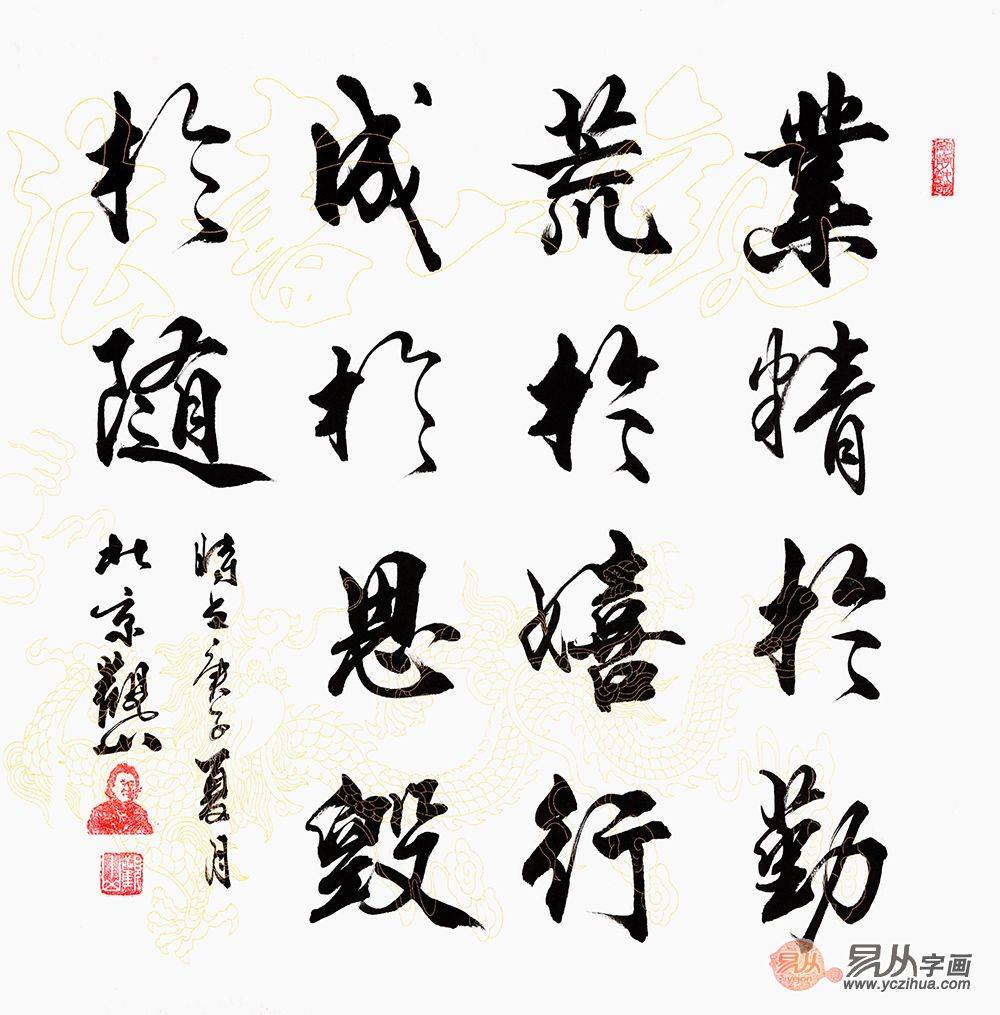 業精於勤
荒於嬉行
成於思毀
於隨
時在庚子夏月
北京觀山
易从字画
www.yczihua.com